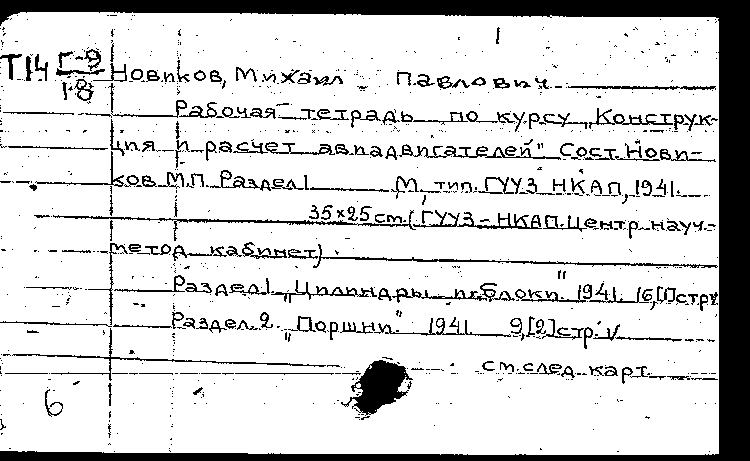 1
Т14 Г-9/18 Новиков, Михаил Павлович
Рабочая тетрадь по курсу „Конструк-
ция и расчет авиадвигателей" Сост. Нови-
ков М.П. Раздел 1 М, тип. ГУУЗ НКАП, 1941.
35×25 cm. (ГУУЗ - НКАП. Центр науч.-
метод кабинет)
Раздел 1 „Цилиндры и блоки" 1941. 16, [1] стр v
Раздел 2. „Поршни" 1941 9, [2] стр. v
см. след. карт.
6